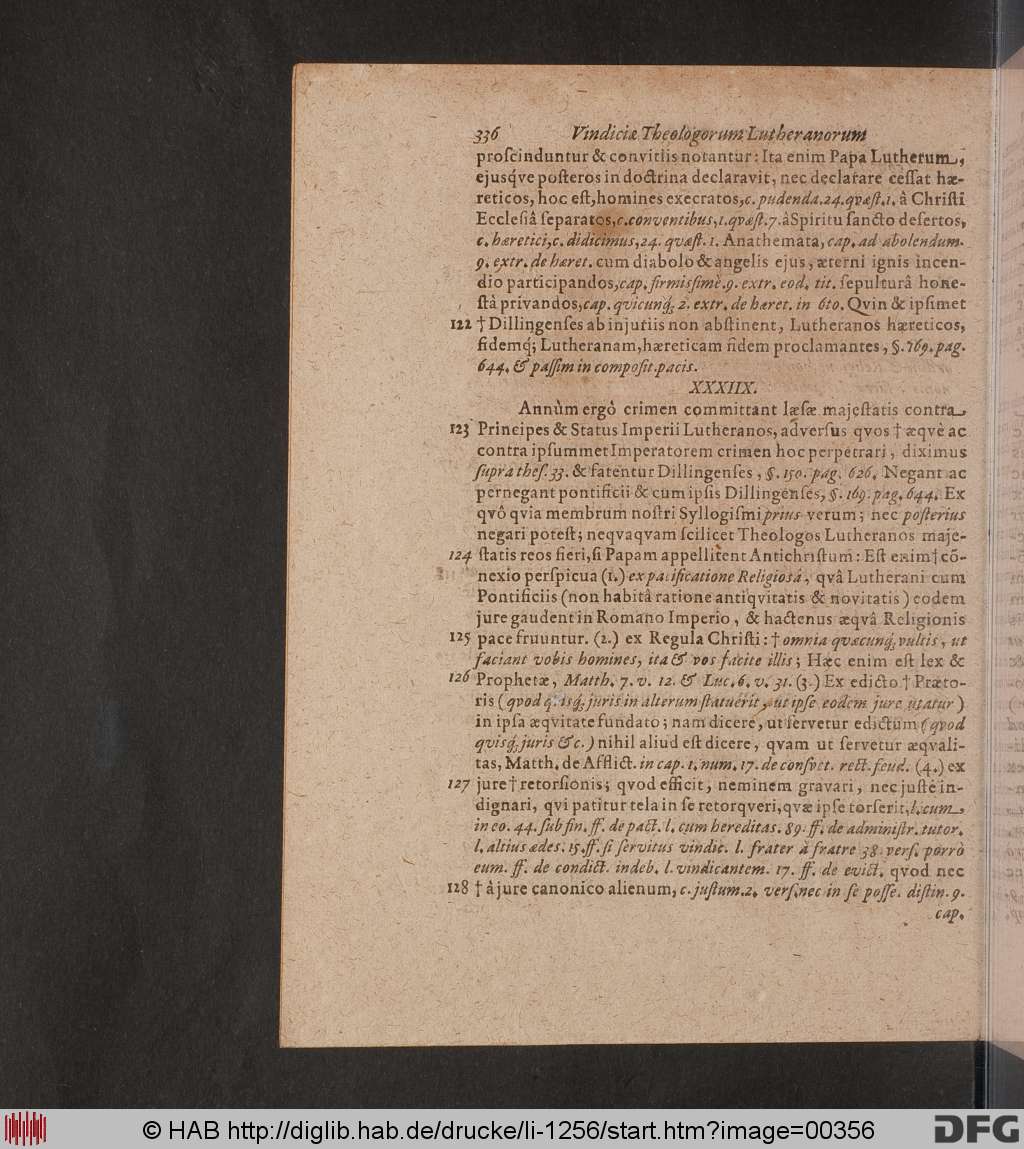 336 Vindiciæ Theologorum Lutheranorum
proſcinduntur & convitiis notantur: Ita enim Papa Lutherum,
ejusq́ve poſteros in doctrina declaravit, nec declarare ceſſat hæ-
reticos, hoc eſt, homines execratos, c. pudenda. 24. qvæſt. 1. â Chriſti
Eccleſiâ ſeparatos, c. conventibus, 1. qvæſt. 7. à Spiritu ſancto deſertos,
c. hæretici, c. didicimus, 24. qvæſt. 1. Anathemata, cap. ad abolendum.
9. extr. de hæret. cum diabolo & angelis ejus, æterni ignis incen-
dio participandos, cap. firmiſſimè. 9. extr. eod. tit. ſepulturâ hone-
ſtâ privandos, cap. qvicunq́; 2. extr. de hæret. in 6to. Qvin & ipſimet
122 † Dillingenſes ab injuriis non abſtinent, Lutheranos hæreticos,
fidemq́; Lutheranam, hæreticam fidem proclamantes, §. 769. pag.
644. & paſſim in compoſit. pacis.
XXXIIX.
Annùm ergò crimen committant læſæ majeſtatis contra
123 Principes & Status Imperii Lutheranos, adverſus qvos † æqvè ac
contra ipſummet Imperatorem crimen hoc perpetrari, diximus
ſupra theſ. 33. & fatentur Dillingenſes, §. 150. pag. 626. Negant ac
pernegant pontificii & cum ipſis Dillingenſes, §. 169. pag. 644. Ex
qvô qvia membrum noſtri Syllogiſmi prius verum; nec poſterius
negari poteſt; neqvaqvam ſcilicet Theologos Lutheranos maje-
124 ſtatis reos fieri, ſi Papam appellitent Antichriſtum: Eſt enim † cõ-
nexio perſpicua (1.) ex pacificatione Religioſâ, qvâ Lutherani cum
Pontificiis (non habitâ ratione antiqvitatis & novitatis) eodem
jure gaudent in Romano Imperio, & hactenus æqvâ Religionis
125 pace fruuntur. (2.) ex Regula Chriſti: † omnia qvæcunq́; vultis, ut
faciant vobis homines, ita & vos facite illis; Hæc enim eſt lex &
126 Prophetæ, Matth. 7. v. 12. & Luc. 6. v. 31. (3.) Ex edicto † Præto-
ris (qvod qvisq́; juris in alterum ſtatuerit, ut ipſe eodem jure utatur)
in ipſa æqvitate fundato; nam dicere, ut ſervetur edictum (qvod
qvisq́; juris &c.) nihil aliud eſt dicere, qvam ut ſervetur æqvali-
tas, Matth. de Afflict. in cap. 1. num. 17. de conſvet. rect. feud. (4.) ex
127 jure † retorſionis; qvod efficit, neminem gravari, nec juſtè in-
dignari, qvi patitur tela in ſe retorqveri, qvæ ipſe torſerit, l. cum
in eo. 44. ſub fin. ff. de pact. l. cum hereditas. 89. ff. de adminiſtr. tutor.
l. altius ædes. 15. ff. ſi ſervitus vindic. l. frater à fratre 38. verſ. porrò
eum. ff. de condict. indeb. l. vindicantem. 17. ff. de evict. qvod nec
128 † à jure canonico alienum, c. juſtum. 2. verſ. nec in ſe poſſe. diſtin. 9.
cap.
© HAB http://diglib.hab.de/drucke/li-1256/start.htm?image=00356
DFG